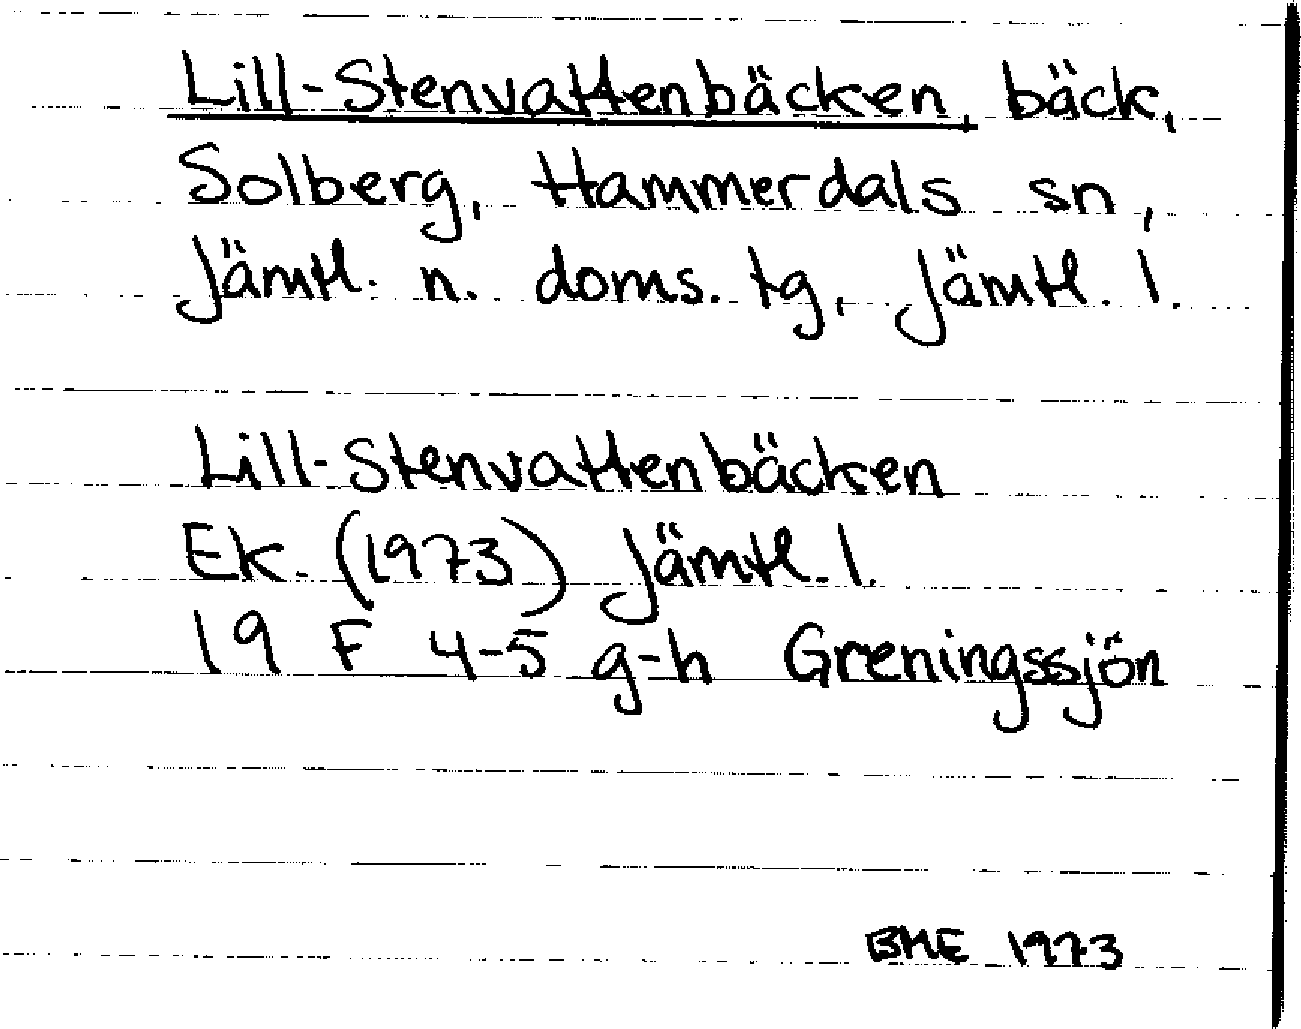 Lill-Stenvattenbäcken, bäck,
Solberg, Hammerdals sn,
Jämtl. n. doms. tg, Jämtl. l.
Lill-Stenvattenbäcken
Ek. (1973) Jämtl. l.
19 F 4-5 g-h Greningssjön
BME 1973